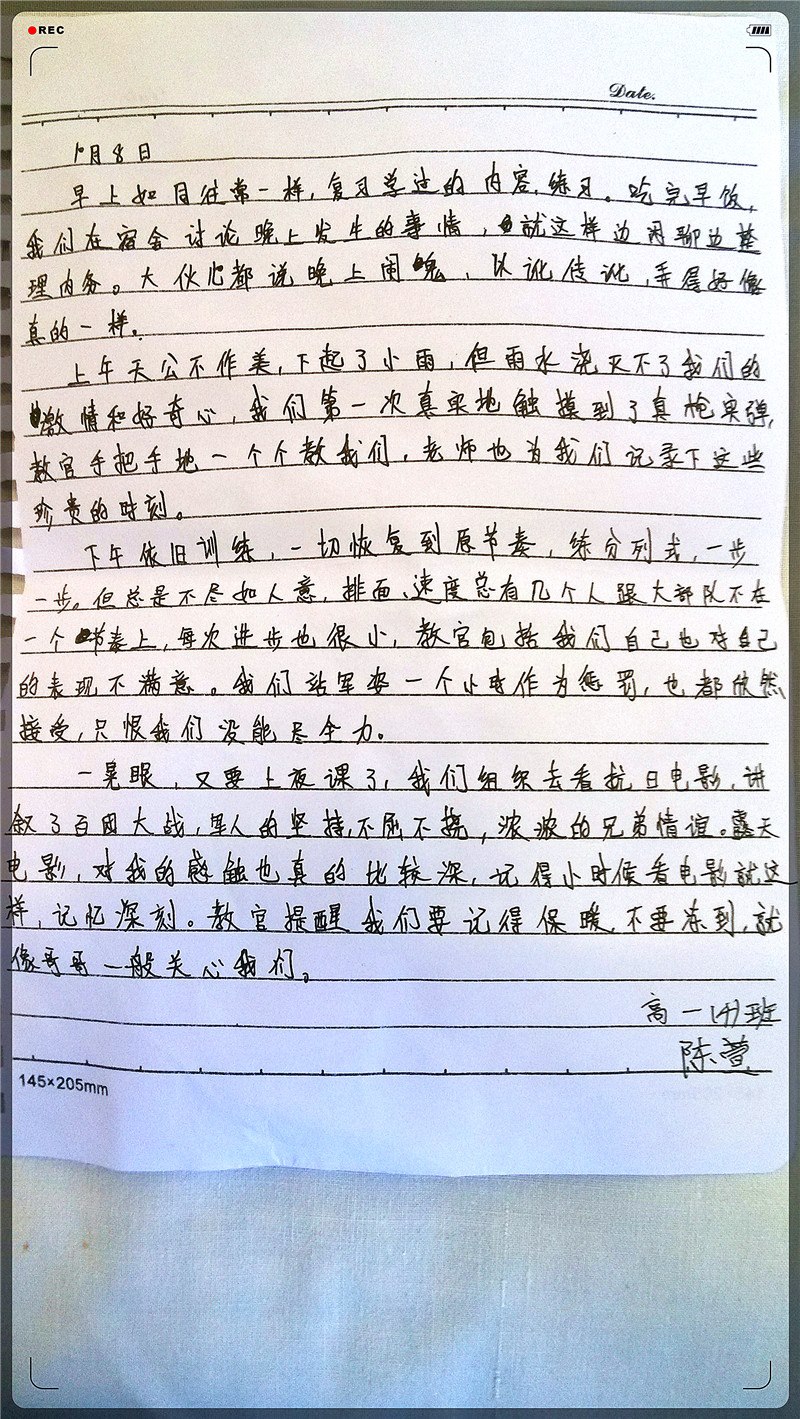 REC
Date.
9月8日
早上如同往常一样,复习学过的内容,练习。吃完早饭,
我们在宿舍讨论晚上发生的事情,就这样边闲聊边整
理内务。大伙儿都说晚上闹鬼,以讹传讹,弄得好像
真的一样。
上午天公不作美,下起了小雨,但雨水浇灭不了我们的
激情和好奇心,我们第一次真实地触摸到了真枪实弹,
教官手把手地一个个教我们,老师也为我们记录下这些
珍贵的时刻。
下午依旧训练,一切恢复到原节奏,练分列式,一步
一步。但总是不尽如人意,排面、速度总有几个人跟大部队不在
一个节奏上,每次进步也很小,教官包括我们自己也对自己
的表现不满意。我们站军姿一个小时作为惩罚,也都欣然
接受,只恨我们没能尽全力。
一晃眼,又要上夜课了,我们组织去看抗日电影,讲
叙了百团大战,军人的坚持,不屈不挠,浓浓的兄弟情谊。露天
电影,对我的感触也真的比较深,记得小时候看电影就这
样,记忆深刻。教官提醒我们要记得保暖,不要冻到,就
像哥哥一般关心我们。
高一班
陈萱
145×205mm